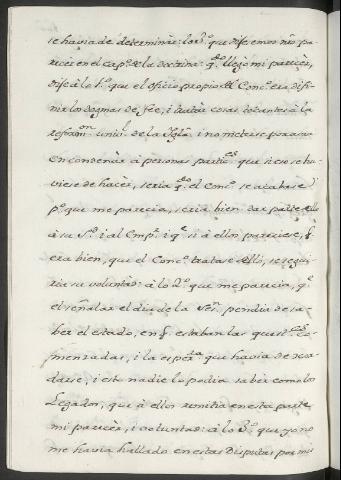 se havia de determinar: lo 3.º que dixesemos nro pa-
recer en el cap.º de la doctrina. q.do llegò mi parecèr,
dixe à lo 1.º que el oficio proprio del Conc.º era difi-
nir los dogmas de fee, i tratàr cosas tocantes à la
reformon. univl. de la Iglª. i no meterse por aora
en condenàr à personas particres. que si eso se hu-
viese de hacèr, seria q.do el Conc.º se acabase
p.º que me parecia, seria bien dar parte dello
à su S.d i al Emp.r i q.e si à ellos pareciese, q.
era bien, que el Conc.º tratase dello, se segui-
ria su voluntad: à lo 2.º que me parecia, q.e
el señalar el dia de la Ses.n pendia de sa-
ber el estado, en q. estaban las questi.es co-
menzadas, i la
que havia de
darse, i esto nadie lo podia saber como los
Legados, que à ellos remitia en esta parte
mi parecèr, i voluntad: à lo 3.º que yo no
me havia hallado en estas Disputas por mis